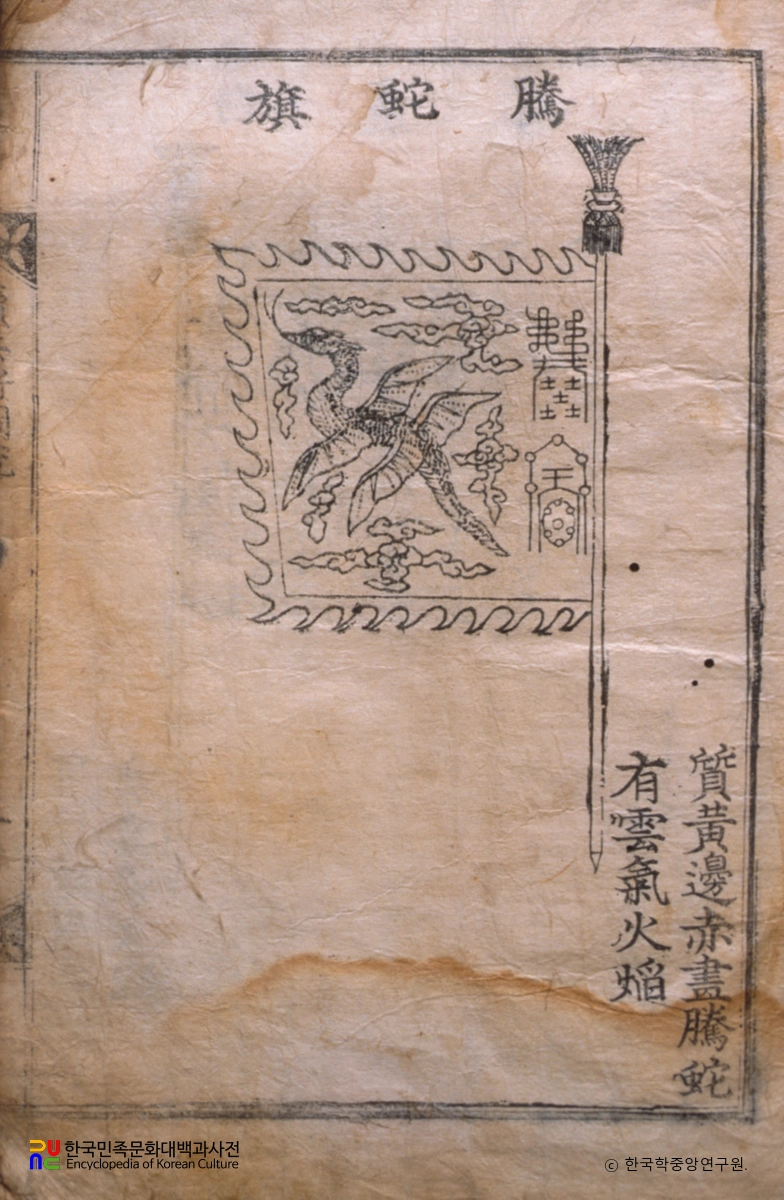 騰蛇旗
質黃邊赤畫騰蛇
有雲氣火焰
한국민족문화대백과사전
Encyclopedia of Korean Culture
ⓒ 한국학중앙연구원.